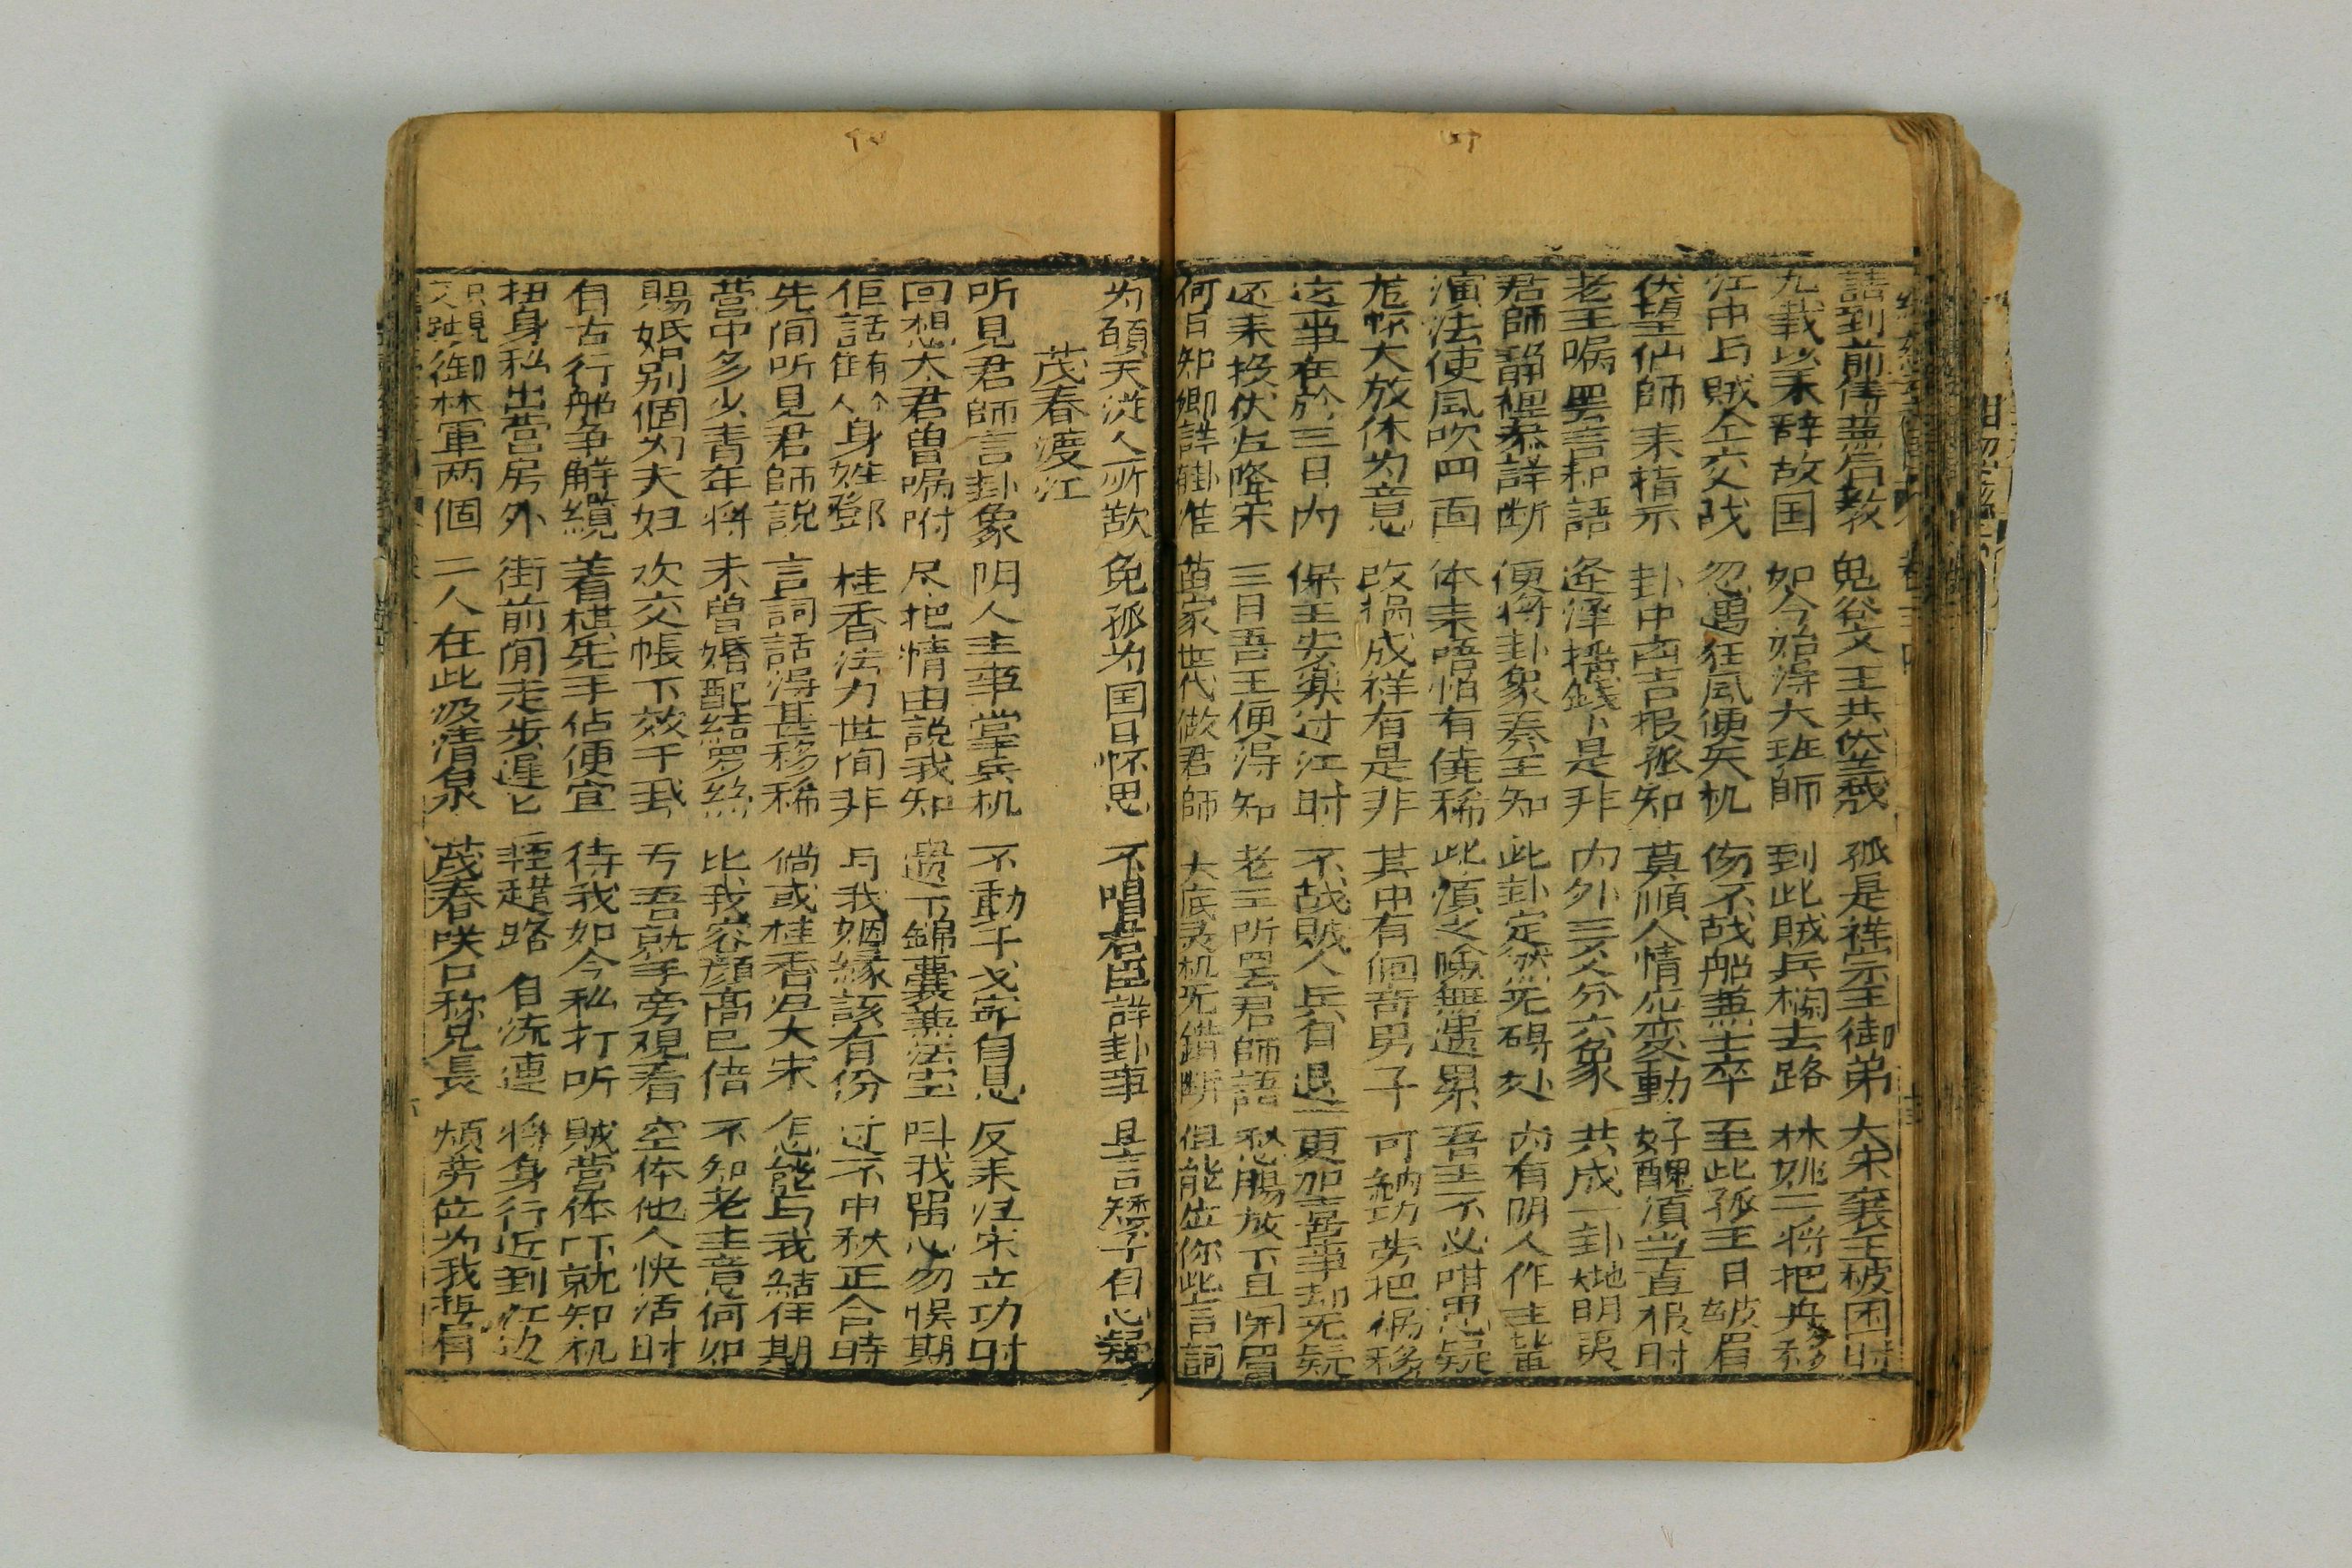 詰到前傳蕪后教 鬼谷文王共伏羲 孤是祥宗主御弟 大宋襄王被困时
九載以来辞故国 如今始淂大班師 到此賊兵攔去路 林姚二将把兵移
江中与賊仝交战 忽遇狂風便失机 伤不战船蕪士卒 至此孤王日皱眉
伏望仙師来指示 卦中凶吉报孤知 莫順人情灮变動 好醜湏当直报时
老王嘱罢言和語 逄泽摇錢卜是非 内外三爻分六象 共成一卦地明夷
君師静裡恭詳断 便将卦象奏主知 此卦定然旡碍处 内有阴人作主
演法使風吹四面 体来唔怕有僥稀 此湏之險無遺累 吾王不必咁思疑
尨懷大放休为意 改禍成祥有是非 其中有個奇男子 可納功劳把禍移
这事在於三日内 保王安冀过江时 不战賊人兵有退 更加喜事却旡疑
还来投伏左降宋 三日吾王便淂知 老王听罢君師語 愁腸放下且開眉
何日知卿詳卦准 苗家世代做君師 大底灵机旡錯断 但能出你此言詞
为碩天從人所欲 免孤为国日怀思 不唱君臣詳卦事 且言矮子自心疑
茂春渡江
听見君師言卦象 阴人主事掌兵机 不動干戈寧自息 反来汪宋立功时
回想大君曽嘱咐 尽把情由説我知 遗下錦囊蕪法宝 呌我留心勿悮期
佢話有个佳人身姓鄧 桂香法力世間非 与我姻緣該有份 过不中秋正合時
先间听見君師説 言詞話淂甚移稀 倘或桂香归大宋 怎能与我結佳期
营中多少青年将 未曽婚配結罗絲 比我容顔高已倍 不知老主意何如
賜婚别個为夫妇 次交帳下效于飛 丐吾就手旁观看 空体他人快活时
有古行船争解纜 着棋先手佔便宜 待我如今私打听 賊营体吓就知机
扭身私出营房外 街前閒走步遲匕 路 自流連 将身行近到江边
又 御林軍两個 二人在此汲清泉 茂春咲口称兄長 煩劳位为我